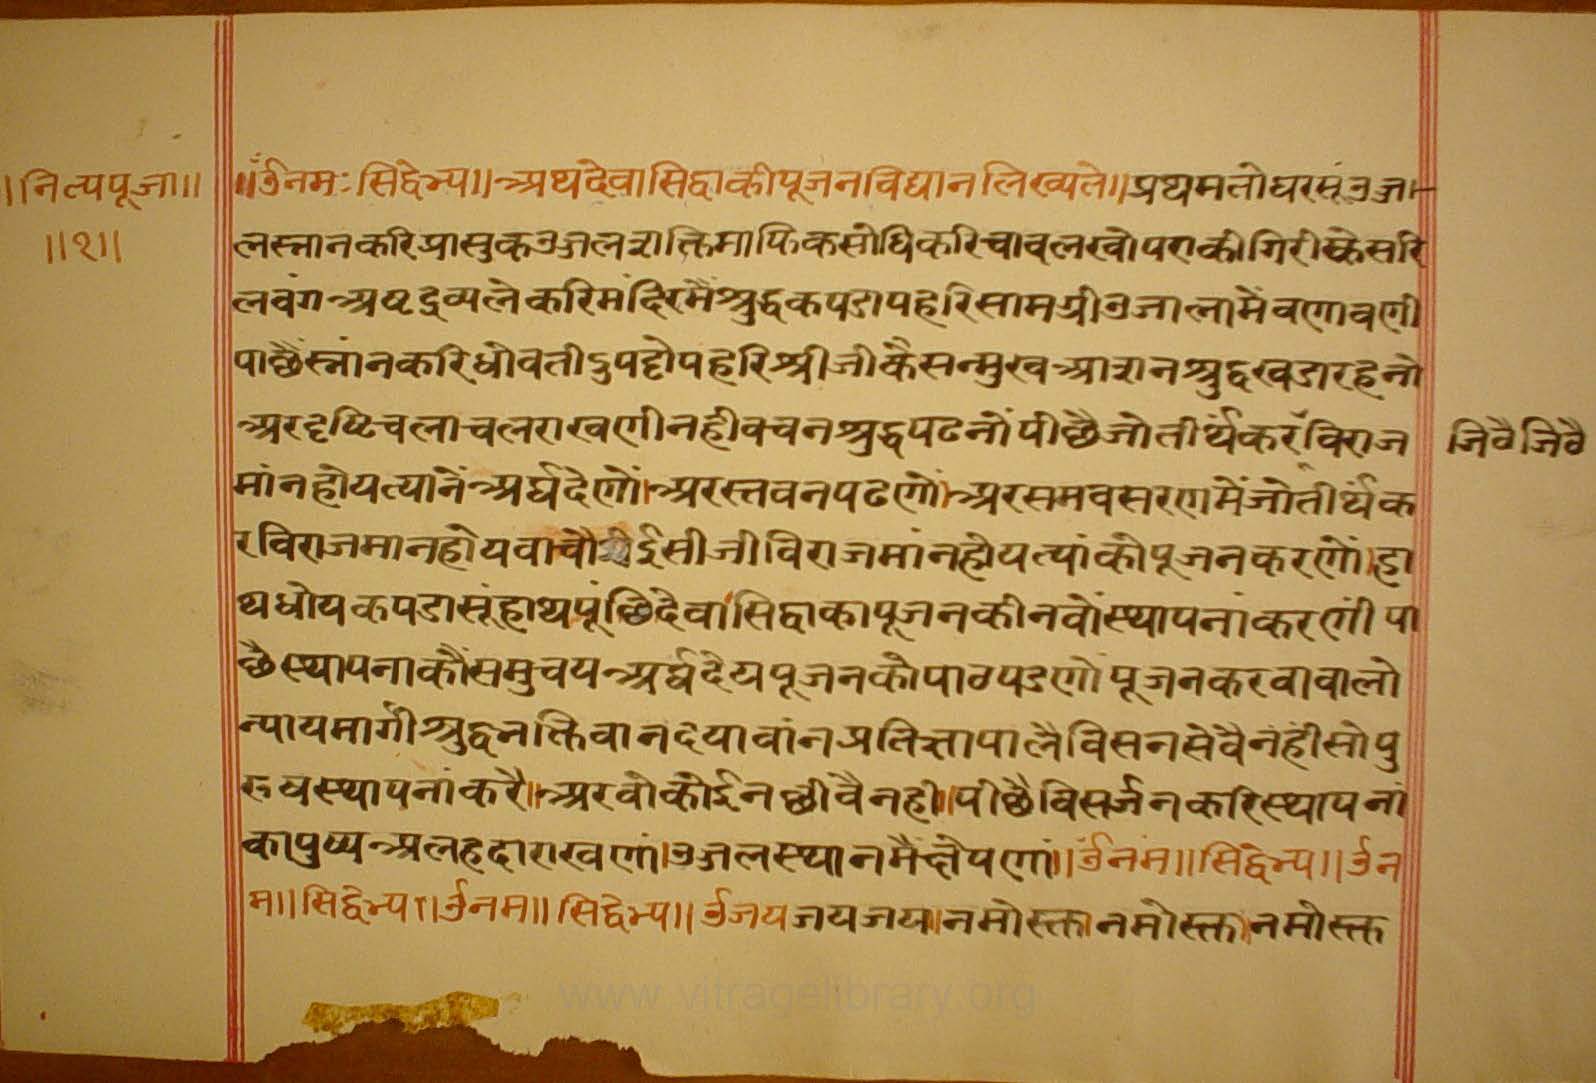 ।नित्यपूजा॥
॥१॥
॥ॐनमःसिद्धेभ्य॥अथदेवासिद्धाकीपूजनविद्यानलिख्यते॥प्रथमतोघरसूंउजा-
लस्नानकरिप्रासुकउजलशक्तिमाफिकसोधिकरिचावलखोपराकीगिरीकेसरि
लवंगअष्टद्रव्यलेकरिमंदिरमैंश्रुद्धकपडापहरिसामग्रीउजालामेंवणावणी
पाछैंस्नांनकरिधोवतीदुपट्टोपहरिश्रीजीकैसन्मुखआशनश्रुद्धखडारहनो
अरदृष्टिचलाचलराखणीनहीवचनश्रुद्धपढनोंपीछैजोतीर्थंकरविराज
जिवैजिवै
मांनहोयत्यानेंअर्घदेणों।अरस्तवनपढणों।अरसमवसरणमेंजोतीर्थंक
रविराजमानहोयवाचौईसीजीविराजमांनहोयत्यांकोपूजनकरणों।हा
थधोयकपडासूंहाथपूंछिदेवासिद्धाकापूजनकीनवोंस्थापनांकरणीं पा
छैस्थापनाकौंसमुचयअर्घदेयपूजनकोपाठपडणों पूजनकरवावालो
न्यायमार्गीश्रुद्धभक्तिवानदयावांनप्रतिज्ञापालैविसनसेवैनंहींसोपु
रुषस्थापनांकरै।अरवोकोईनछीवैनही॥पीछैविसर्जनकरिस्थापनां
कापुष्पअलहदाराखणां।उजलस्थानमैंक्षेपणां॥ॐनम॥सिद्धेभ्य॥ॐन
म॥सिद्धेभ्य॥ॐनम॥सिद्धेभ्य॥ॐजयजयजय॥नमोस्तु।नमोस्तु।नमोस्तु
www.vitragelibrary.org